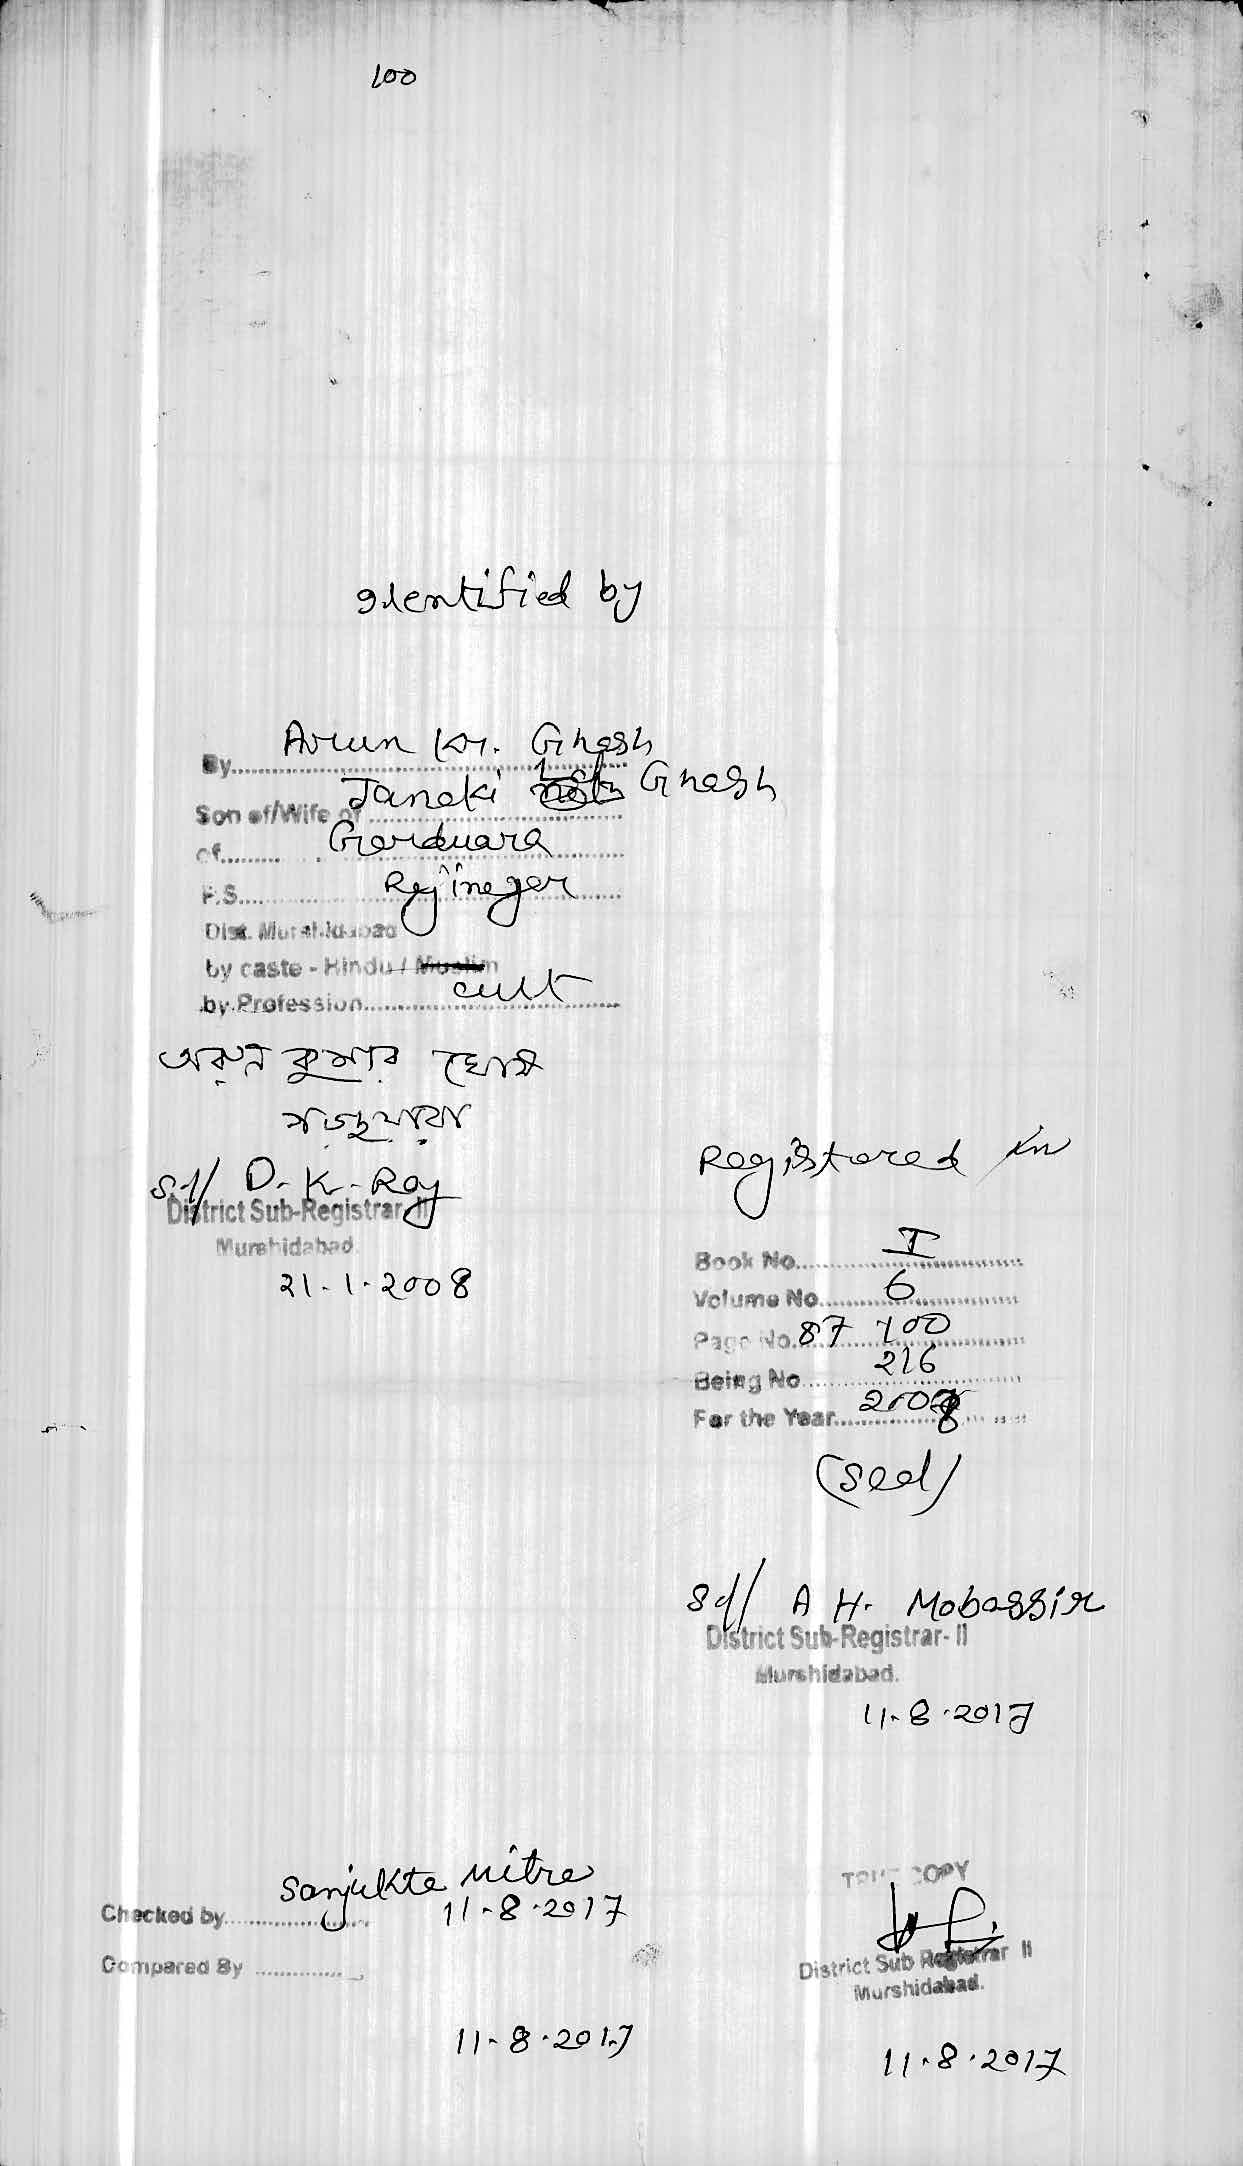 100
Identified by
By Arun Kr. Ghosh
Son of/Wife of Janaki Ghosh
of Garduara
P.S. Rejinagar
Dist. Murshidabad
by caste - Hindu / Muslim
by Profession cult
অরুন কুমার ঘোষ
গড়দুয়ারা
Sd/ D. K. Roy
District Sub-Registrar-II
Murshidabad.
21.1.2008
Registered in
Book No. I
Volume No. 6
Page No. 87 100
Being No. 216
For the Year 2008
(Seal)
Sd/ A H. Mobassir
District Sub-Registrar- II
Murshidabad.
11.8.2017
Sanjukta Mitra
Checked by 11-8-2017
Compared By
11-8-2017
TRUE COPY
District Sub Registrar II
Murshidabad.
11.8.2017